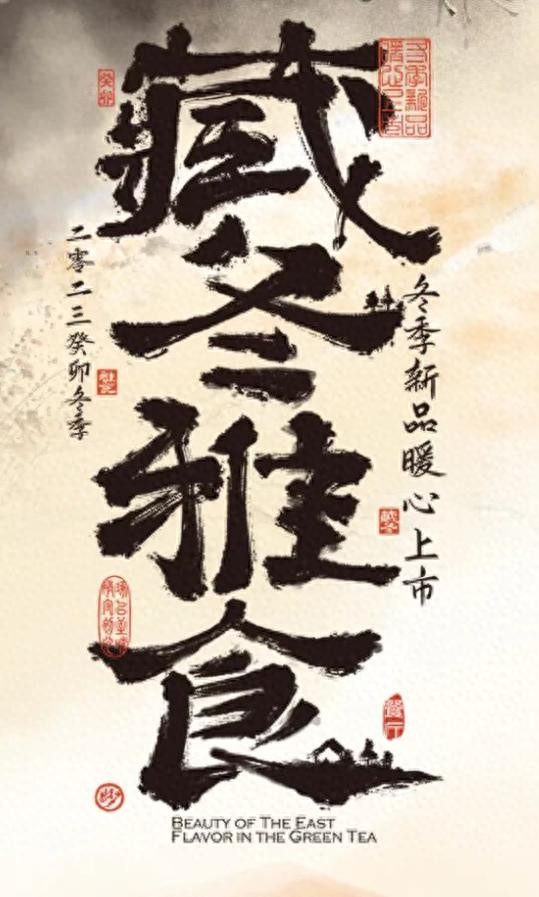 藏冬雅食
冬季新品暖心上市
二零二三癸卯冬季
癸卯
冬季新品
暖心上市
餐厅
BEAUTY OF THE EAST
FLAVOR IN THE GREEN TEA